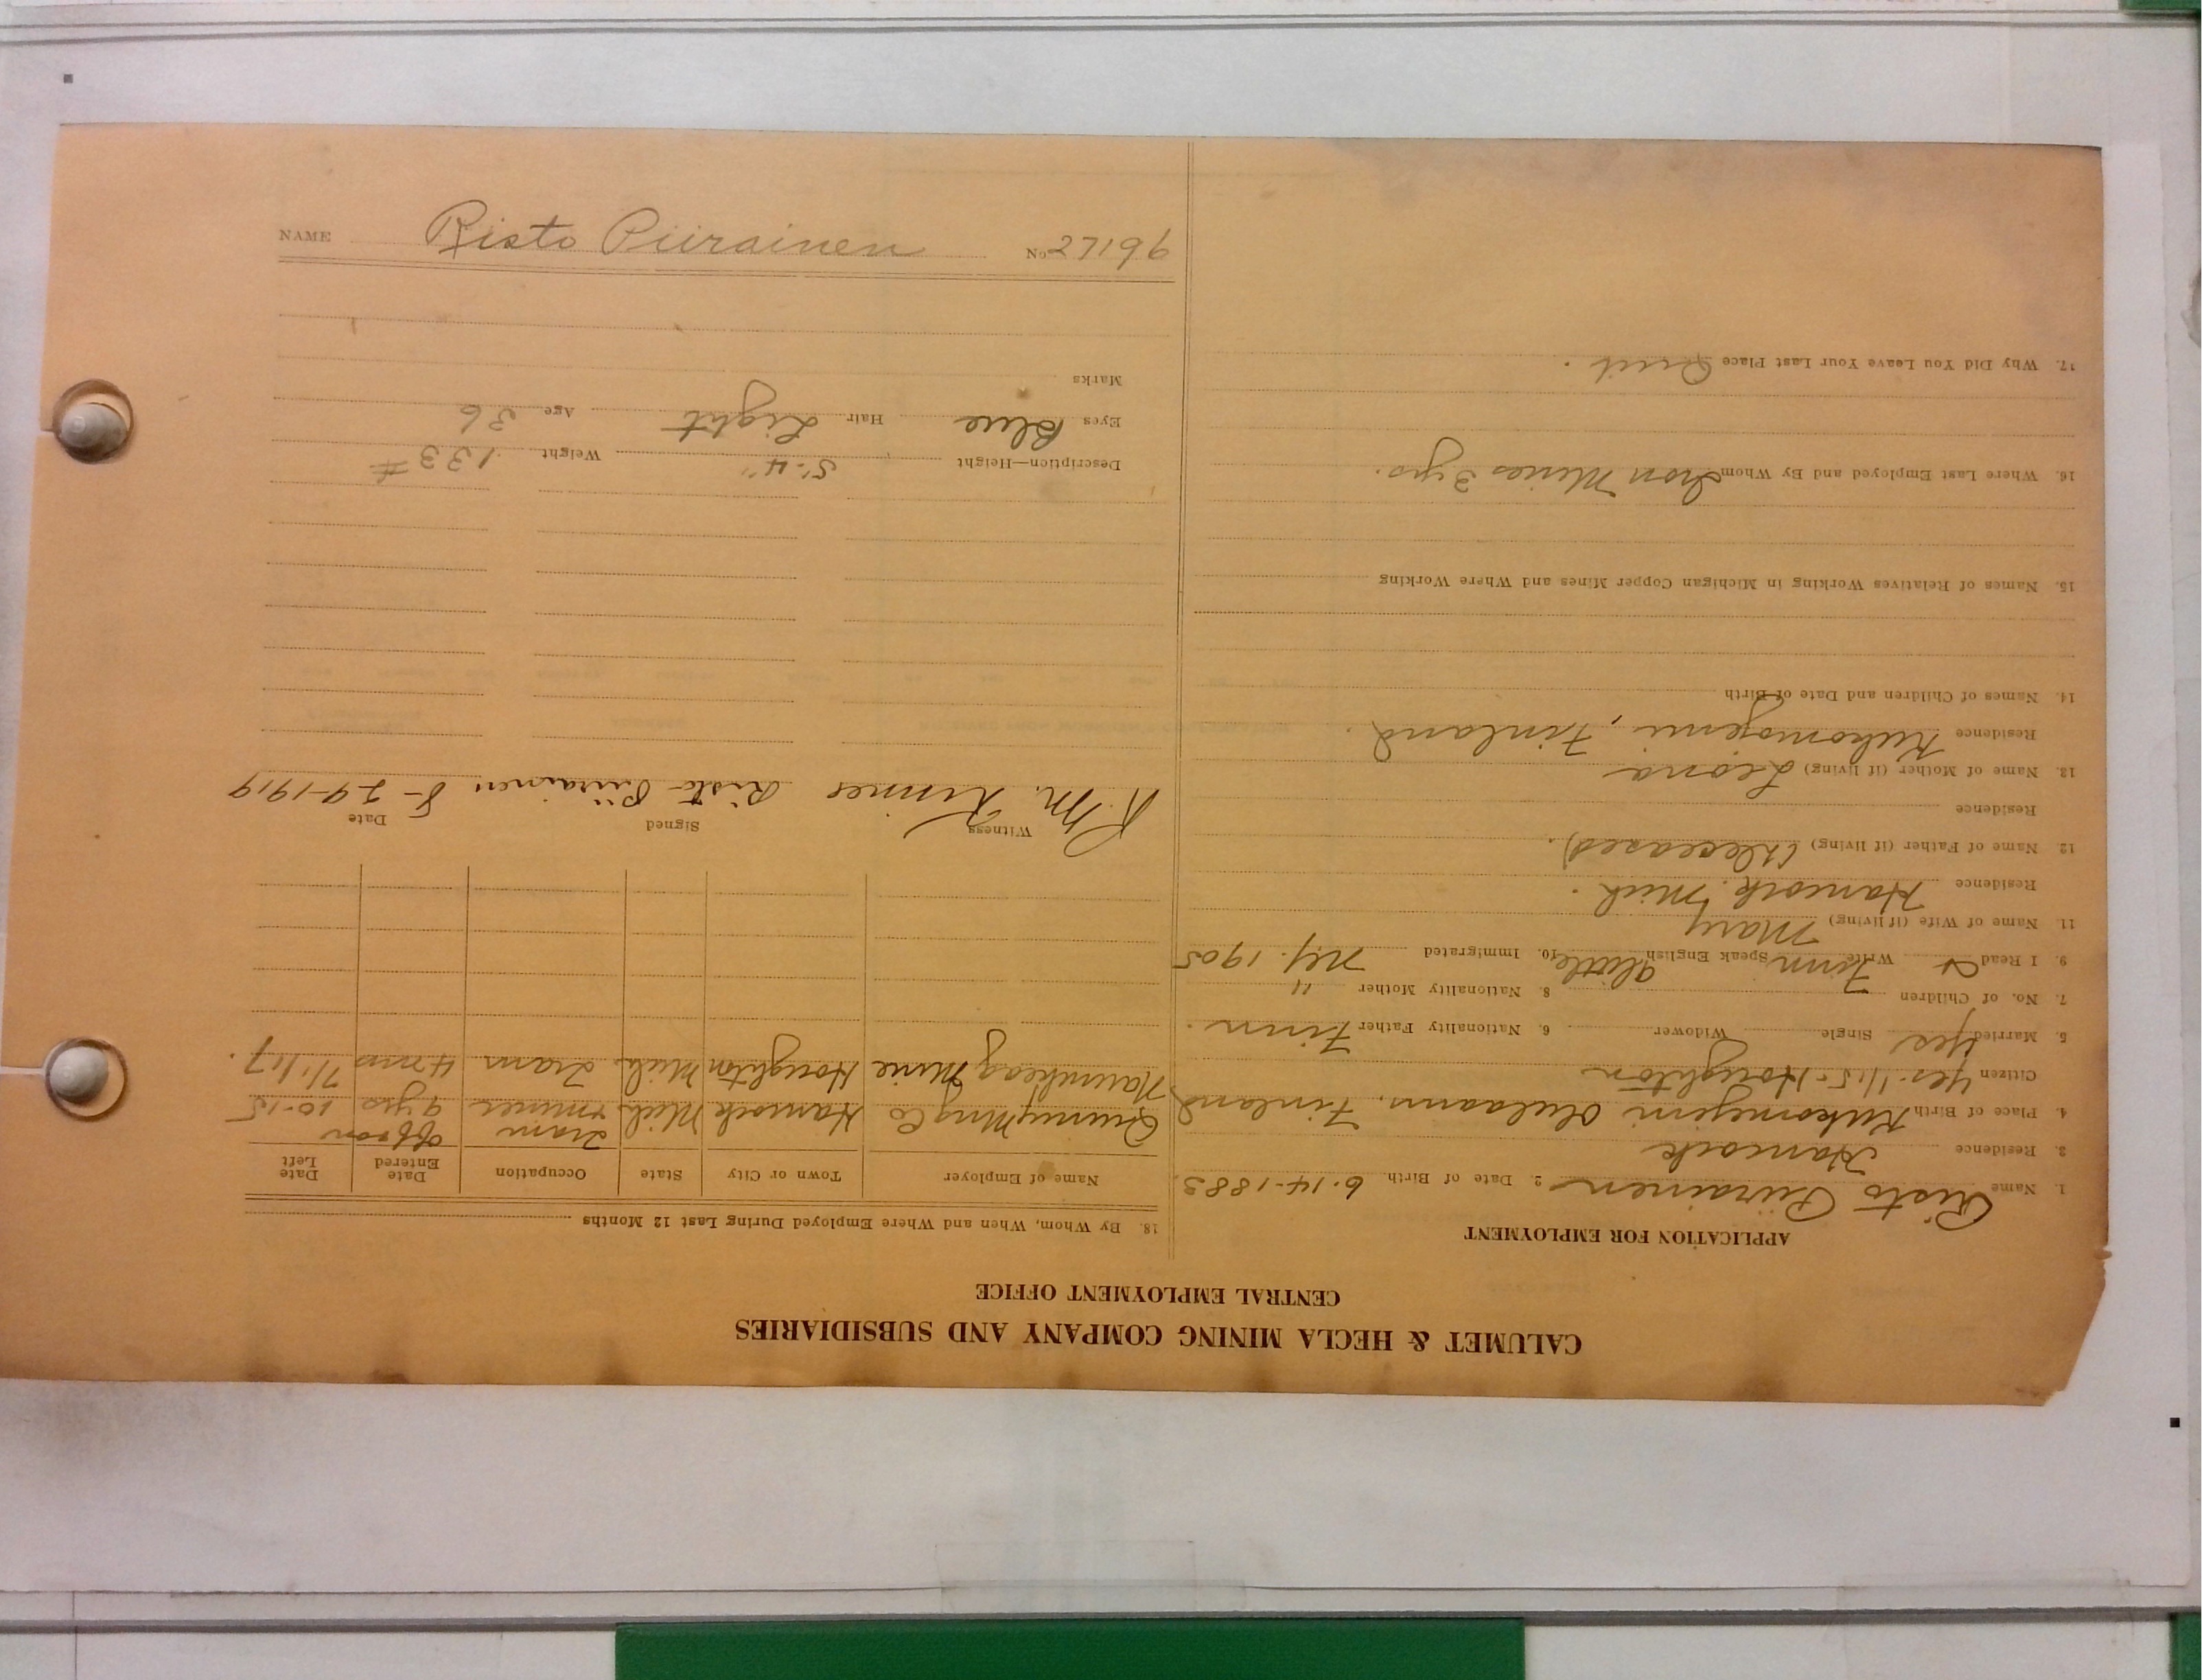 CALUMET & HECLA MINING COMPANY AND SUBSIDIARIES
CENTRAL EMPLOYMENT OFFICE
APPLICATION FOR EMPLOYMENT
1. Name Risto Piirainen 2. Date of Birth 6-14-1883
3. Residence Hancock
4. Place of Birth Oulaann, Finland
Citizen Yes. 1/15. Houghton
5. Married Yes Single Widower 6. Nationality Father Finn.
7. No. of Children 8. Nationality Mother "
9. I Read Write Finn Speak English little 10. Immigrated N.Y. 1905
11. Name of Wife (if living) Mary
Residence Hancock Mich.
12. Name of Father (if living) (deceased).
Residence
13. Name of Mother (if living) Leona
Residence Finland.
14. Names of Children and Date of Birth
15. Names of Relatives Working in Michigan Copper Mines and Where Working
16. Where Last Employed and By Whom Iron Mines 3 yrs.
17. Why Did You Leave Your Last Place Quit.
18. By Whom, When and Where Employed During Last 12 Months
Name of Employer Town or City State Occupation Date Entered Date Left
Quincy Mng Co Hancock Mich Tram + miner off & on 9 yrs 10-15
Naumkeag Mine Houghton Mich. Tram 4 mns 7/1/17.
Witness Signed Date
R. M. Risto Piirainen 8-29-1919
Description—Height 5'-4" Weight 133#
Eyes Blue Hair Light Age 36
Marks
NAME Risto Piirainen No 27196